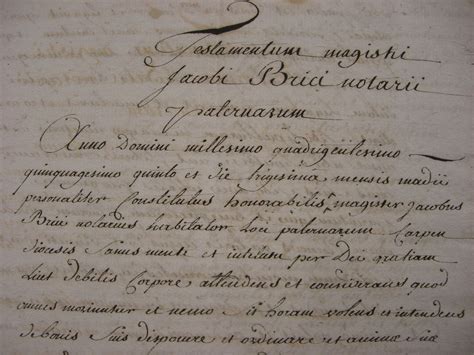 Testamentum magistri
Jacobi Brici notarii
paternarum
Anno Domini millesimo quadrigentesimo
quinquagesimo quinto et die vigesima mensis madii
personaliter Constitutus honorabilis magister Jacobus
Brici notarius habitator loci paternarum Carpen
diocesis Sanus mente et intellectu per Dei gratiam
licet debilis Corpore, attendens et considerans quod
omnes moriuntur et nemo horam volens et intendens
de bonis suis disponere et ordinare et animæ suæ